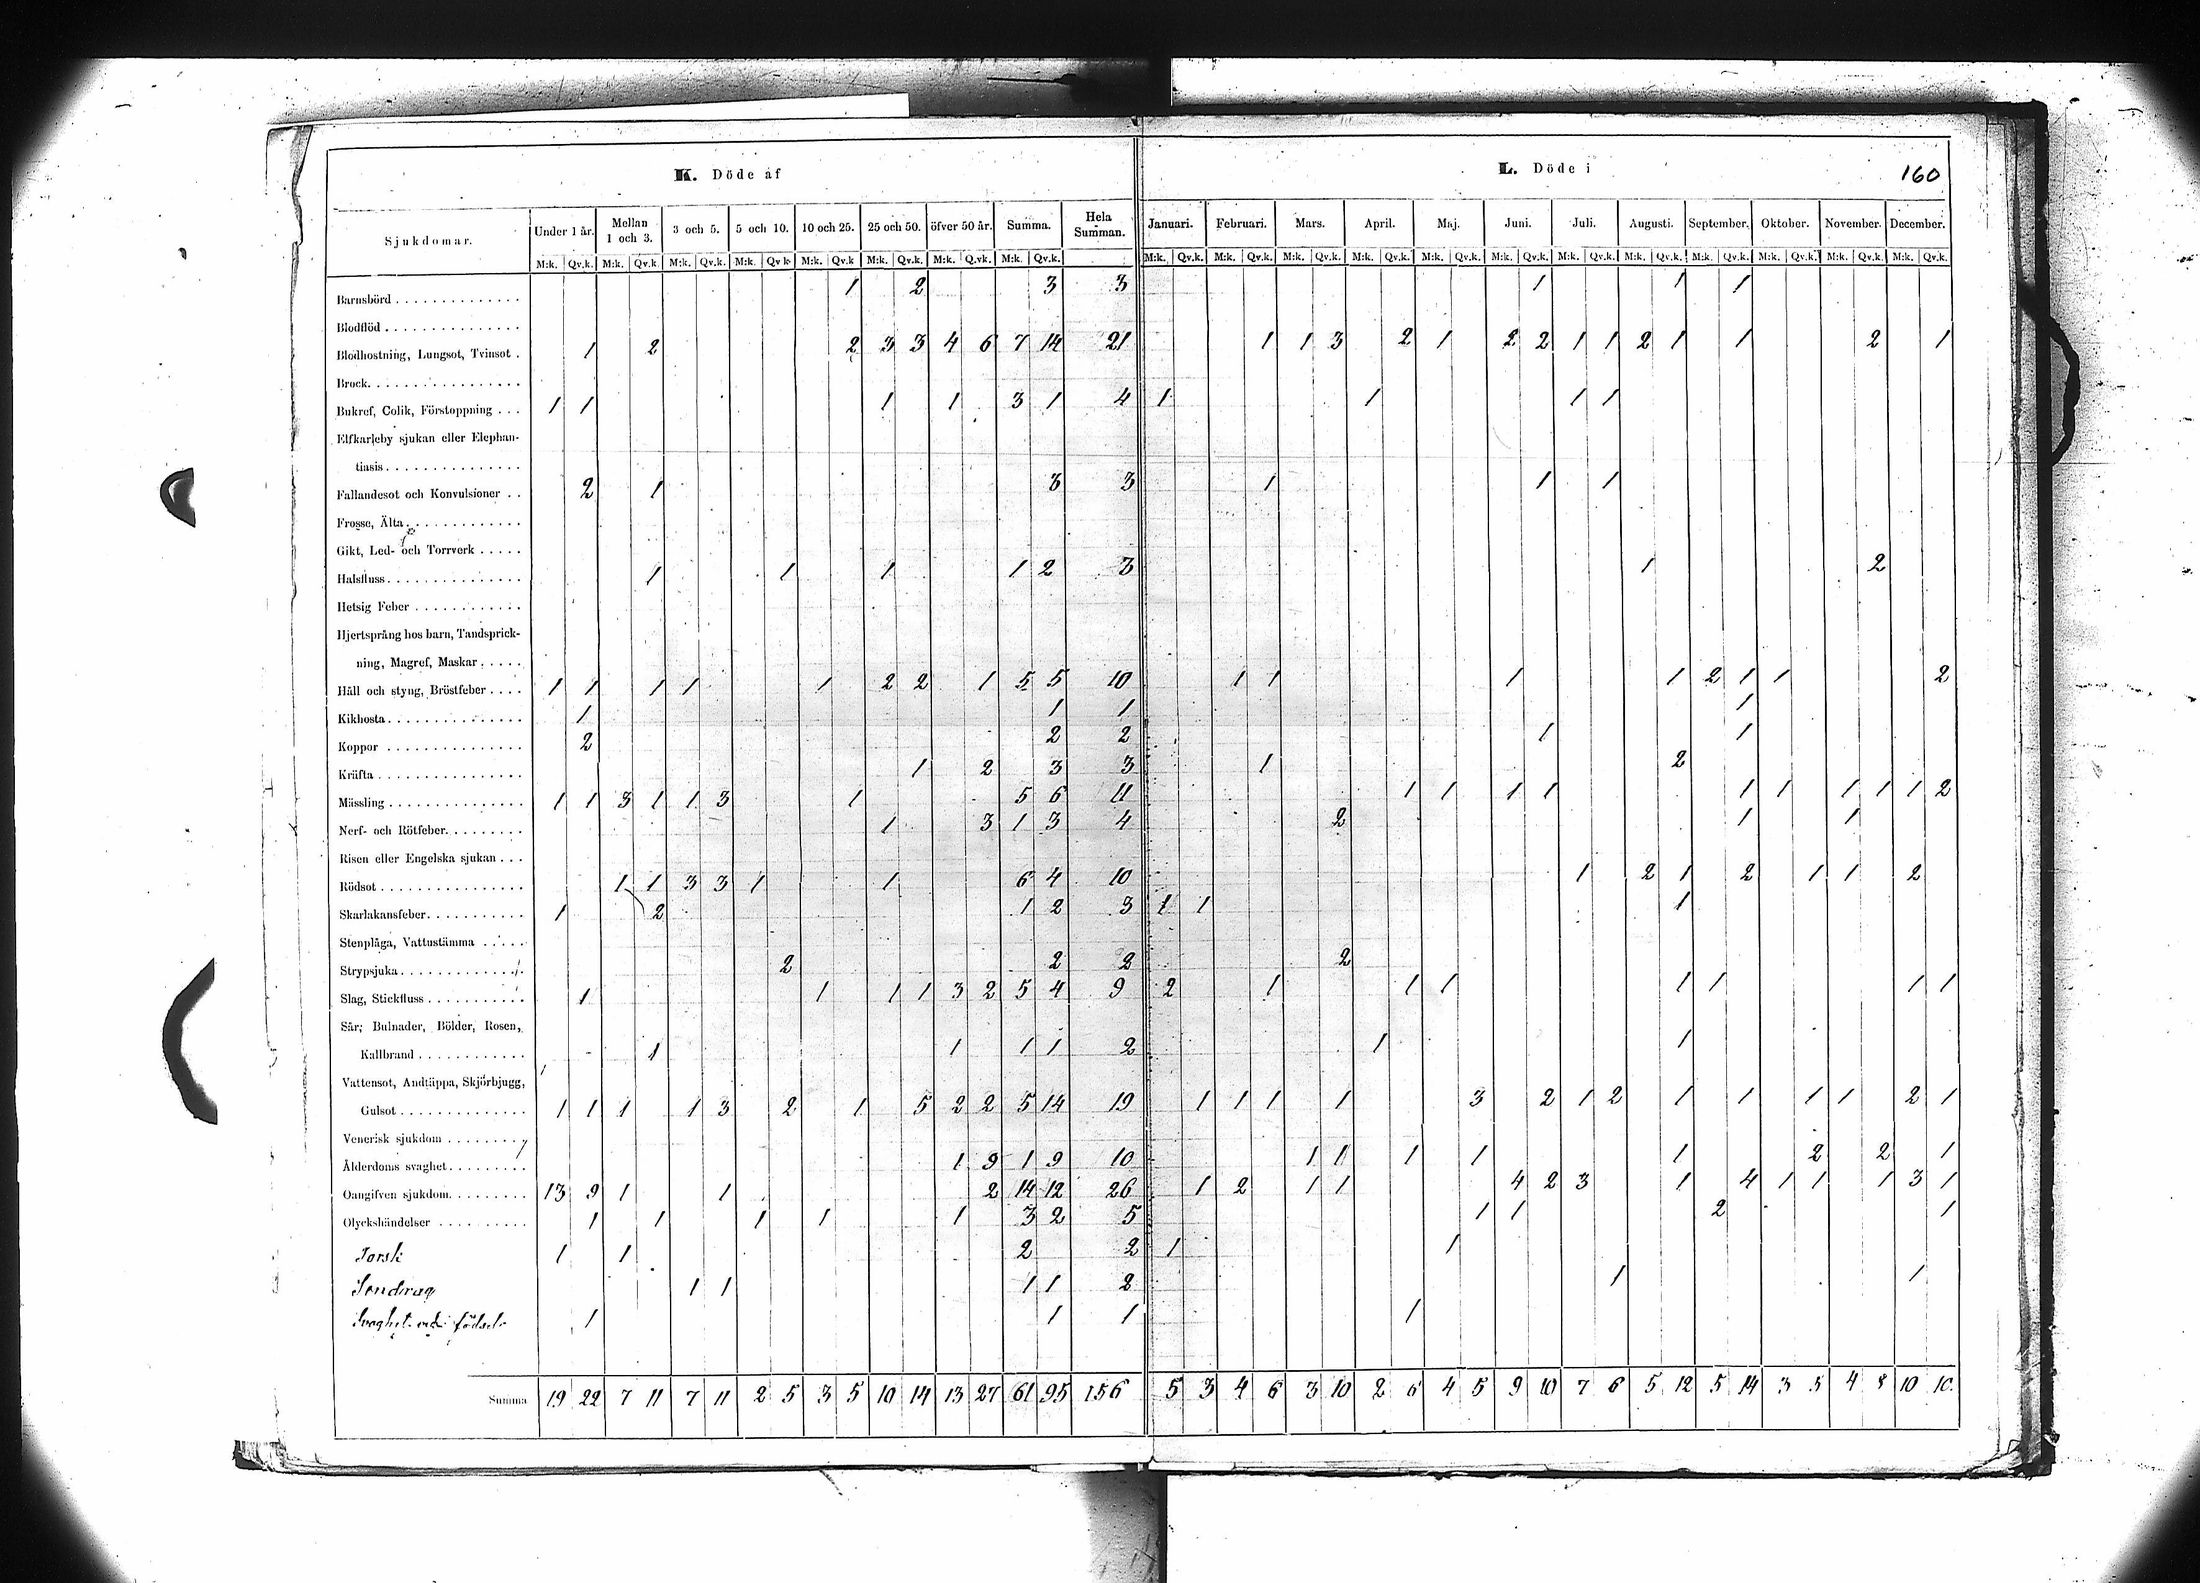 K. Döde af
L. Döde i 160
Sjukdomar. Under 1 år. Mellan 1 och 3. 3 och 5. 5 och 10. 10 och 25. 25 och 50. öfver 50 år. Summa. Hela Summan. Januari. Februari. Mars. April. Maj. Juni. Juli. Augusti. September. Oktober. November. December.
M:k. Qv.k. M:k. Qv.k. M:k. Qv.k. M:k. Qv.k M:k. Qv.k M:k. Qv.k. M:k. Qv.k. M:k. Qv.k. M:k. Qv.k. M:k. Qv.k. M:k. Qv.k. M:k. Qv.k. M:k. Qv.k. M:k. Qv.k. M:k. Qv.k. M:k. Qv.k. M:k. Qv.k. M:k. Qv.k. M:k. Qv.k. M:k. Qv.k.
Barnsbörd 1 2 3 3 1 1 1
Blodflöd
Blodhostning, Lungsot, Tvinsot 1 2 2 3 3 4 6 7 14 21 1 1 3 2 1 2 2 1 1 2 1 1 2 1
Brock
Bukref, Colik, Förstoppning 1 1 1 1 3 1 4 1 1 1 1
Elfkarleby sjukan eller Elephan-
tiasis
Fallandesot och Konvulsioner 2 1 3 3 1 1 1
Frosse, Älta
Gikt, Led- och Torrverk
Halsfluss 1 1 1 1 2 3 1 2
Hetsig Feber
Hjertsprång hos barn, Tandsprick-
ning, Magref, Maskar
Håll och styng, Bröstfeber 1 1 1 1 1 2 2 1 5 5 10 1 1 1 1 2 1 1 2
Kikhosta 1 1 1 1
Koppor 2 2 2 1 1
Kräfta 1 2 3 3 1 2
Mässling 1 1 3 1 1 3 1 5 6 11 1 1 1 1 1 1 1 1 1 2
Nerf- och Rötfeber 1 3 1 3 4 2 1 1
Risen eller Engelska sjukan
Rödsot 1 1 3 3 1 1 6 4 10 1 2 1 2 1 1 2
Skarlakansfeber 1 2 1 2 3 1 1 1
Stenplåga, Vattustämma
Strypsjuka 2 2 2 2
Slag, Stickfluss 1 1 1 1 3 2 5 4 9 2 1 1 1 1 1 1 1
Sår, Bulnader, Bölder, Rosen,
Kallbrand 1 1 1 1 2 1 1
Vattensot, Andtäppa, Skjörbjugg,
Gulsot 1 1 1 1 3 2 1 5 2 2 5 14 19 1 1 1 1 3 2 1 2 1 1 1 1 2 1
Venerisk sjukdom
Ålderdoms svaghet 1 9 1 9 10 1 1 1 1 1 2 2 1
Oangifven sjukdom 13 9 1 1 2 14 12 26 1 2 1 1 4 2 3 1 4 1 1 1 3 1
Olyckshändelser 1 1 1 1 1 3 2 5 1 1 2 1
Torsk 1 1 2 2 1 1
Sendrag 1 1 1 1 2 1 1
Svaghet vid födseln 1 1 1 1
Summa 19 22 7 11 7 11 2 5 3 5 10 14 13 27 61 95 156 5 3 4 6 3 10 2 6 4 5 9 10 7 6 5 12 5 14 3 5 4 8 10 10